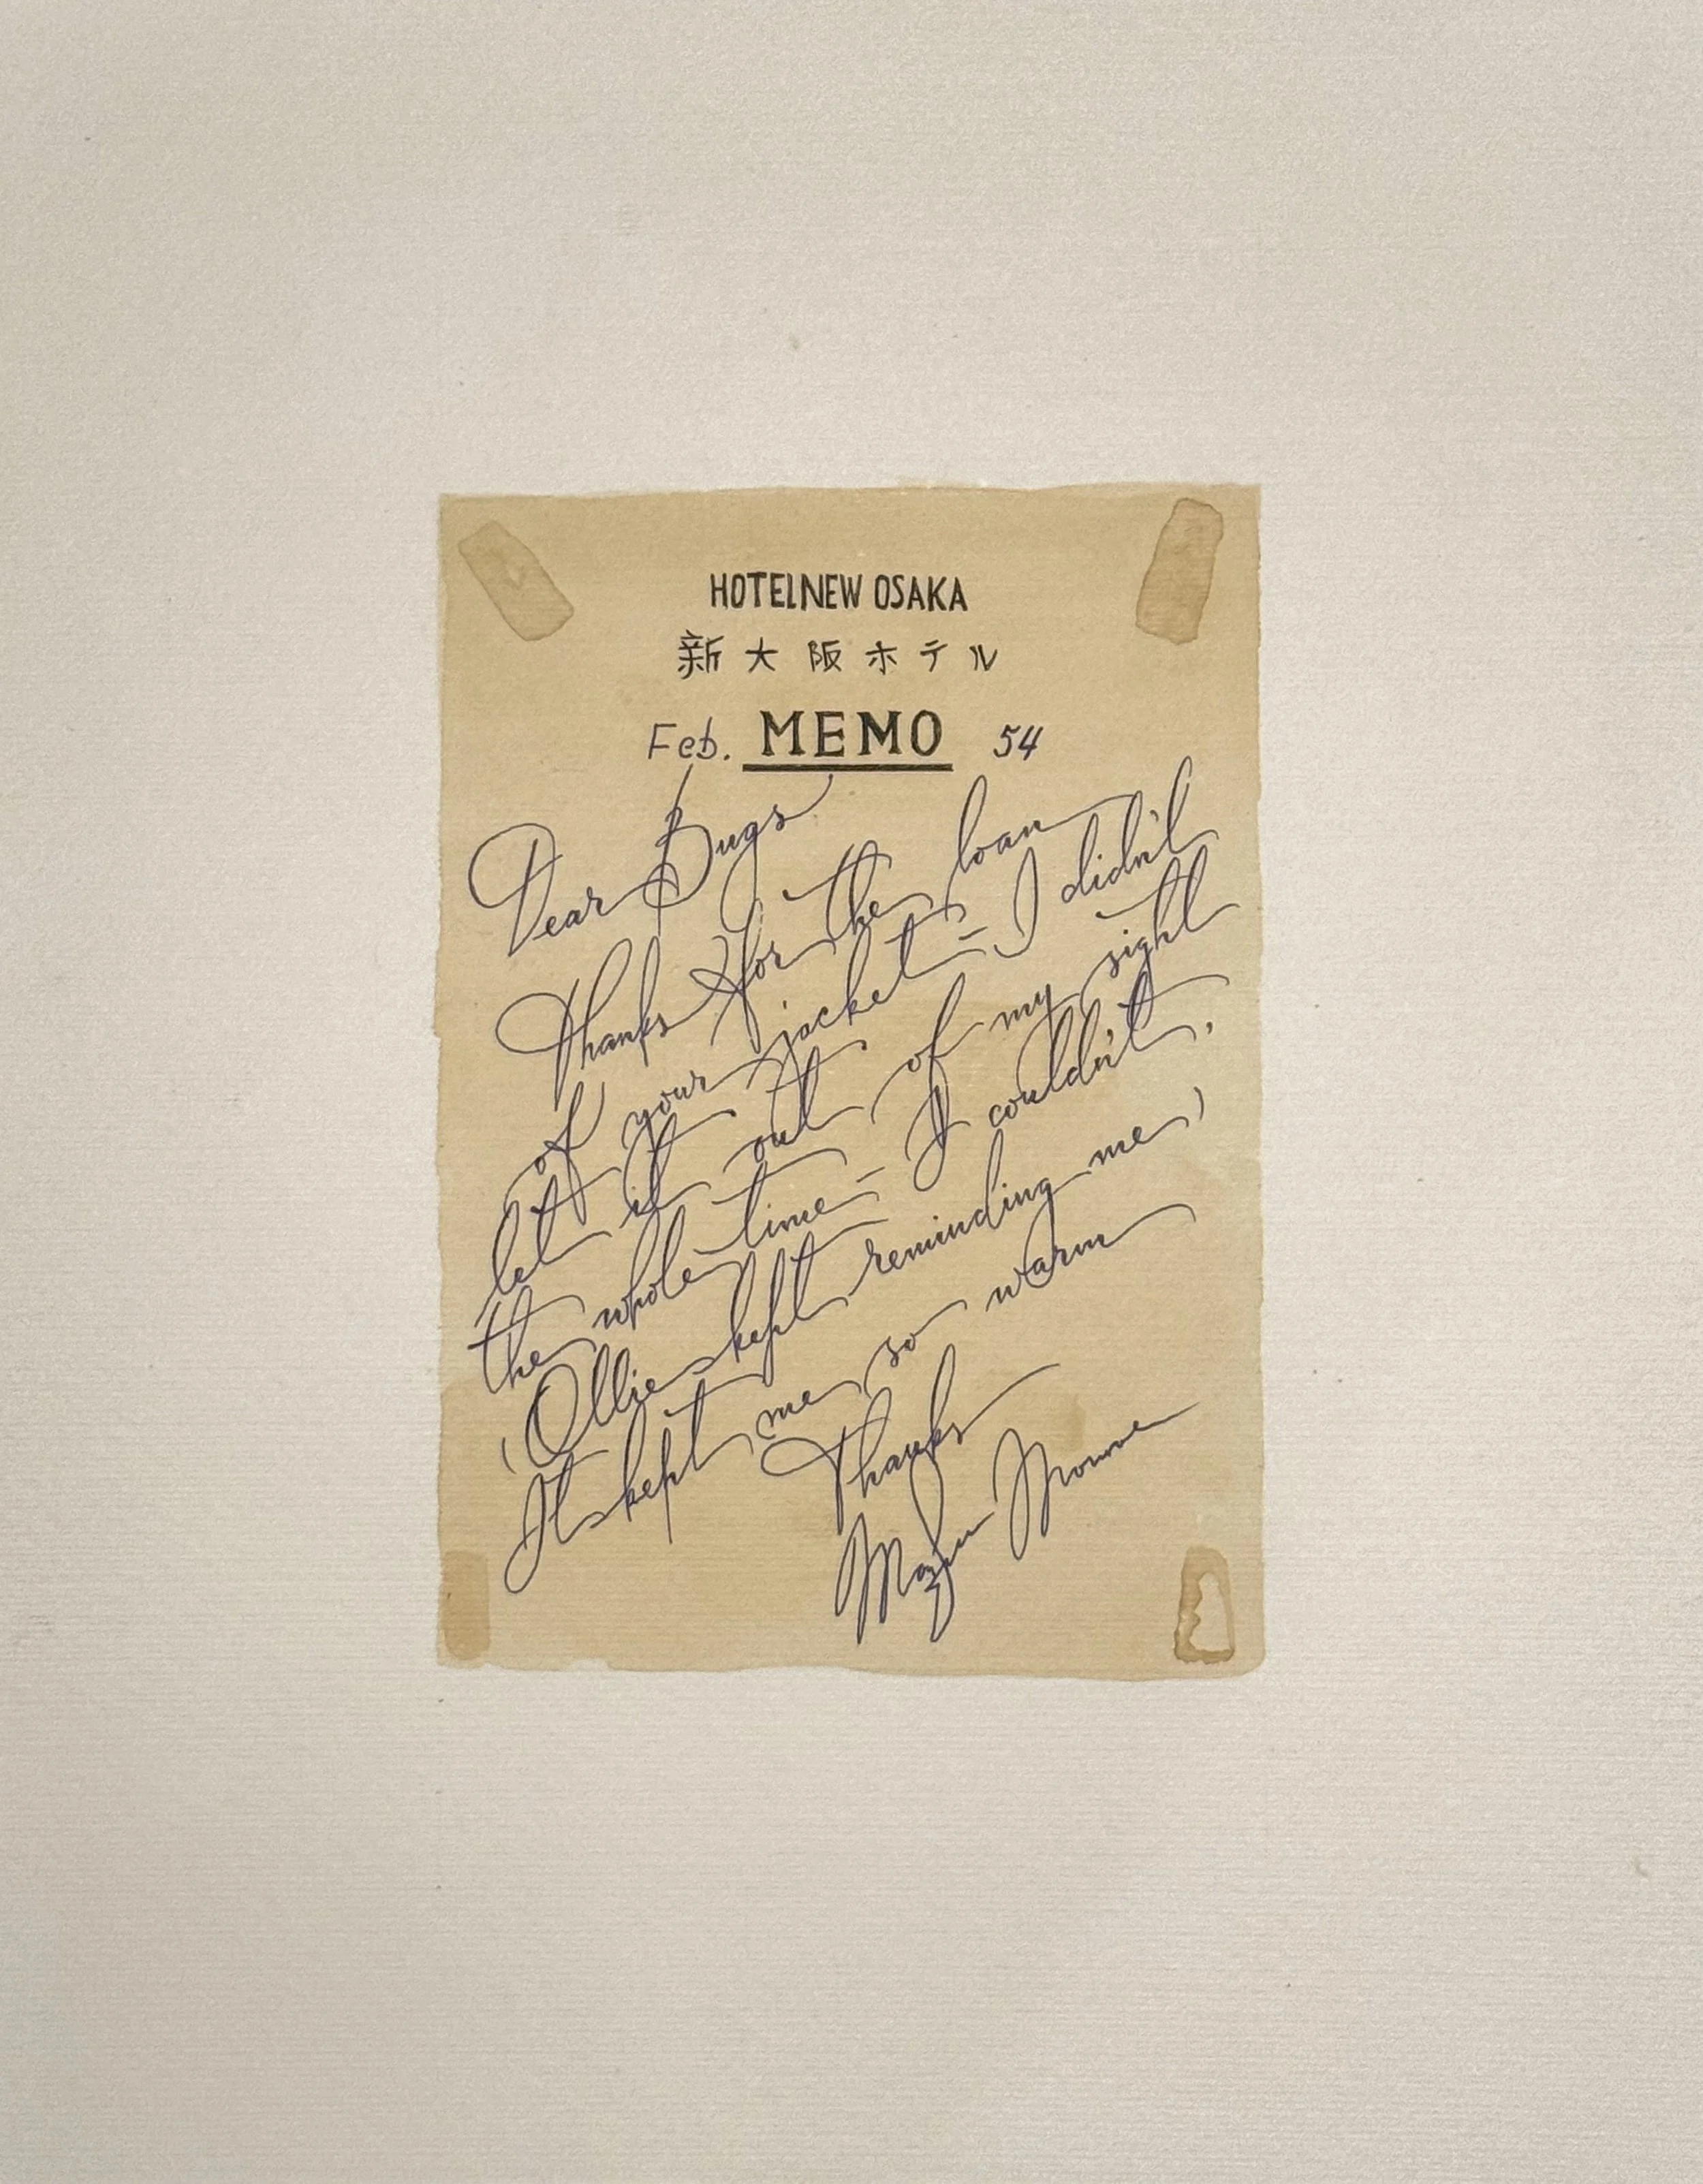 HOTEL NEW OSAKA
新大阪ホテル
Feb. MEMO 54
Dear Bugs
Thanks for the loan
of your jacket - I didn't
let it out of my sight
the whole time - I couldn't.
(Ollie kept reminding me)
It kept me so warm
Thanks
Marilyn Monroe